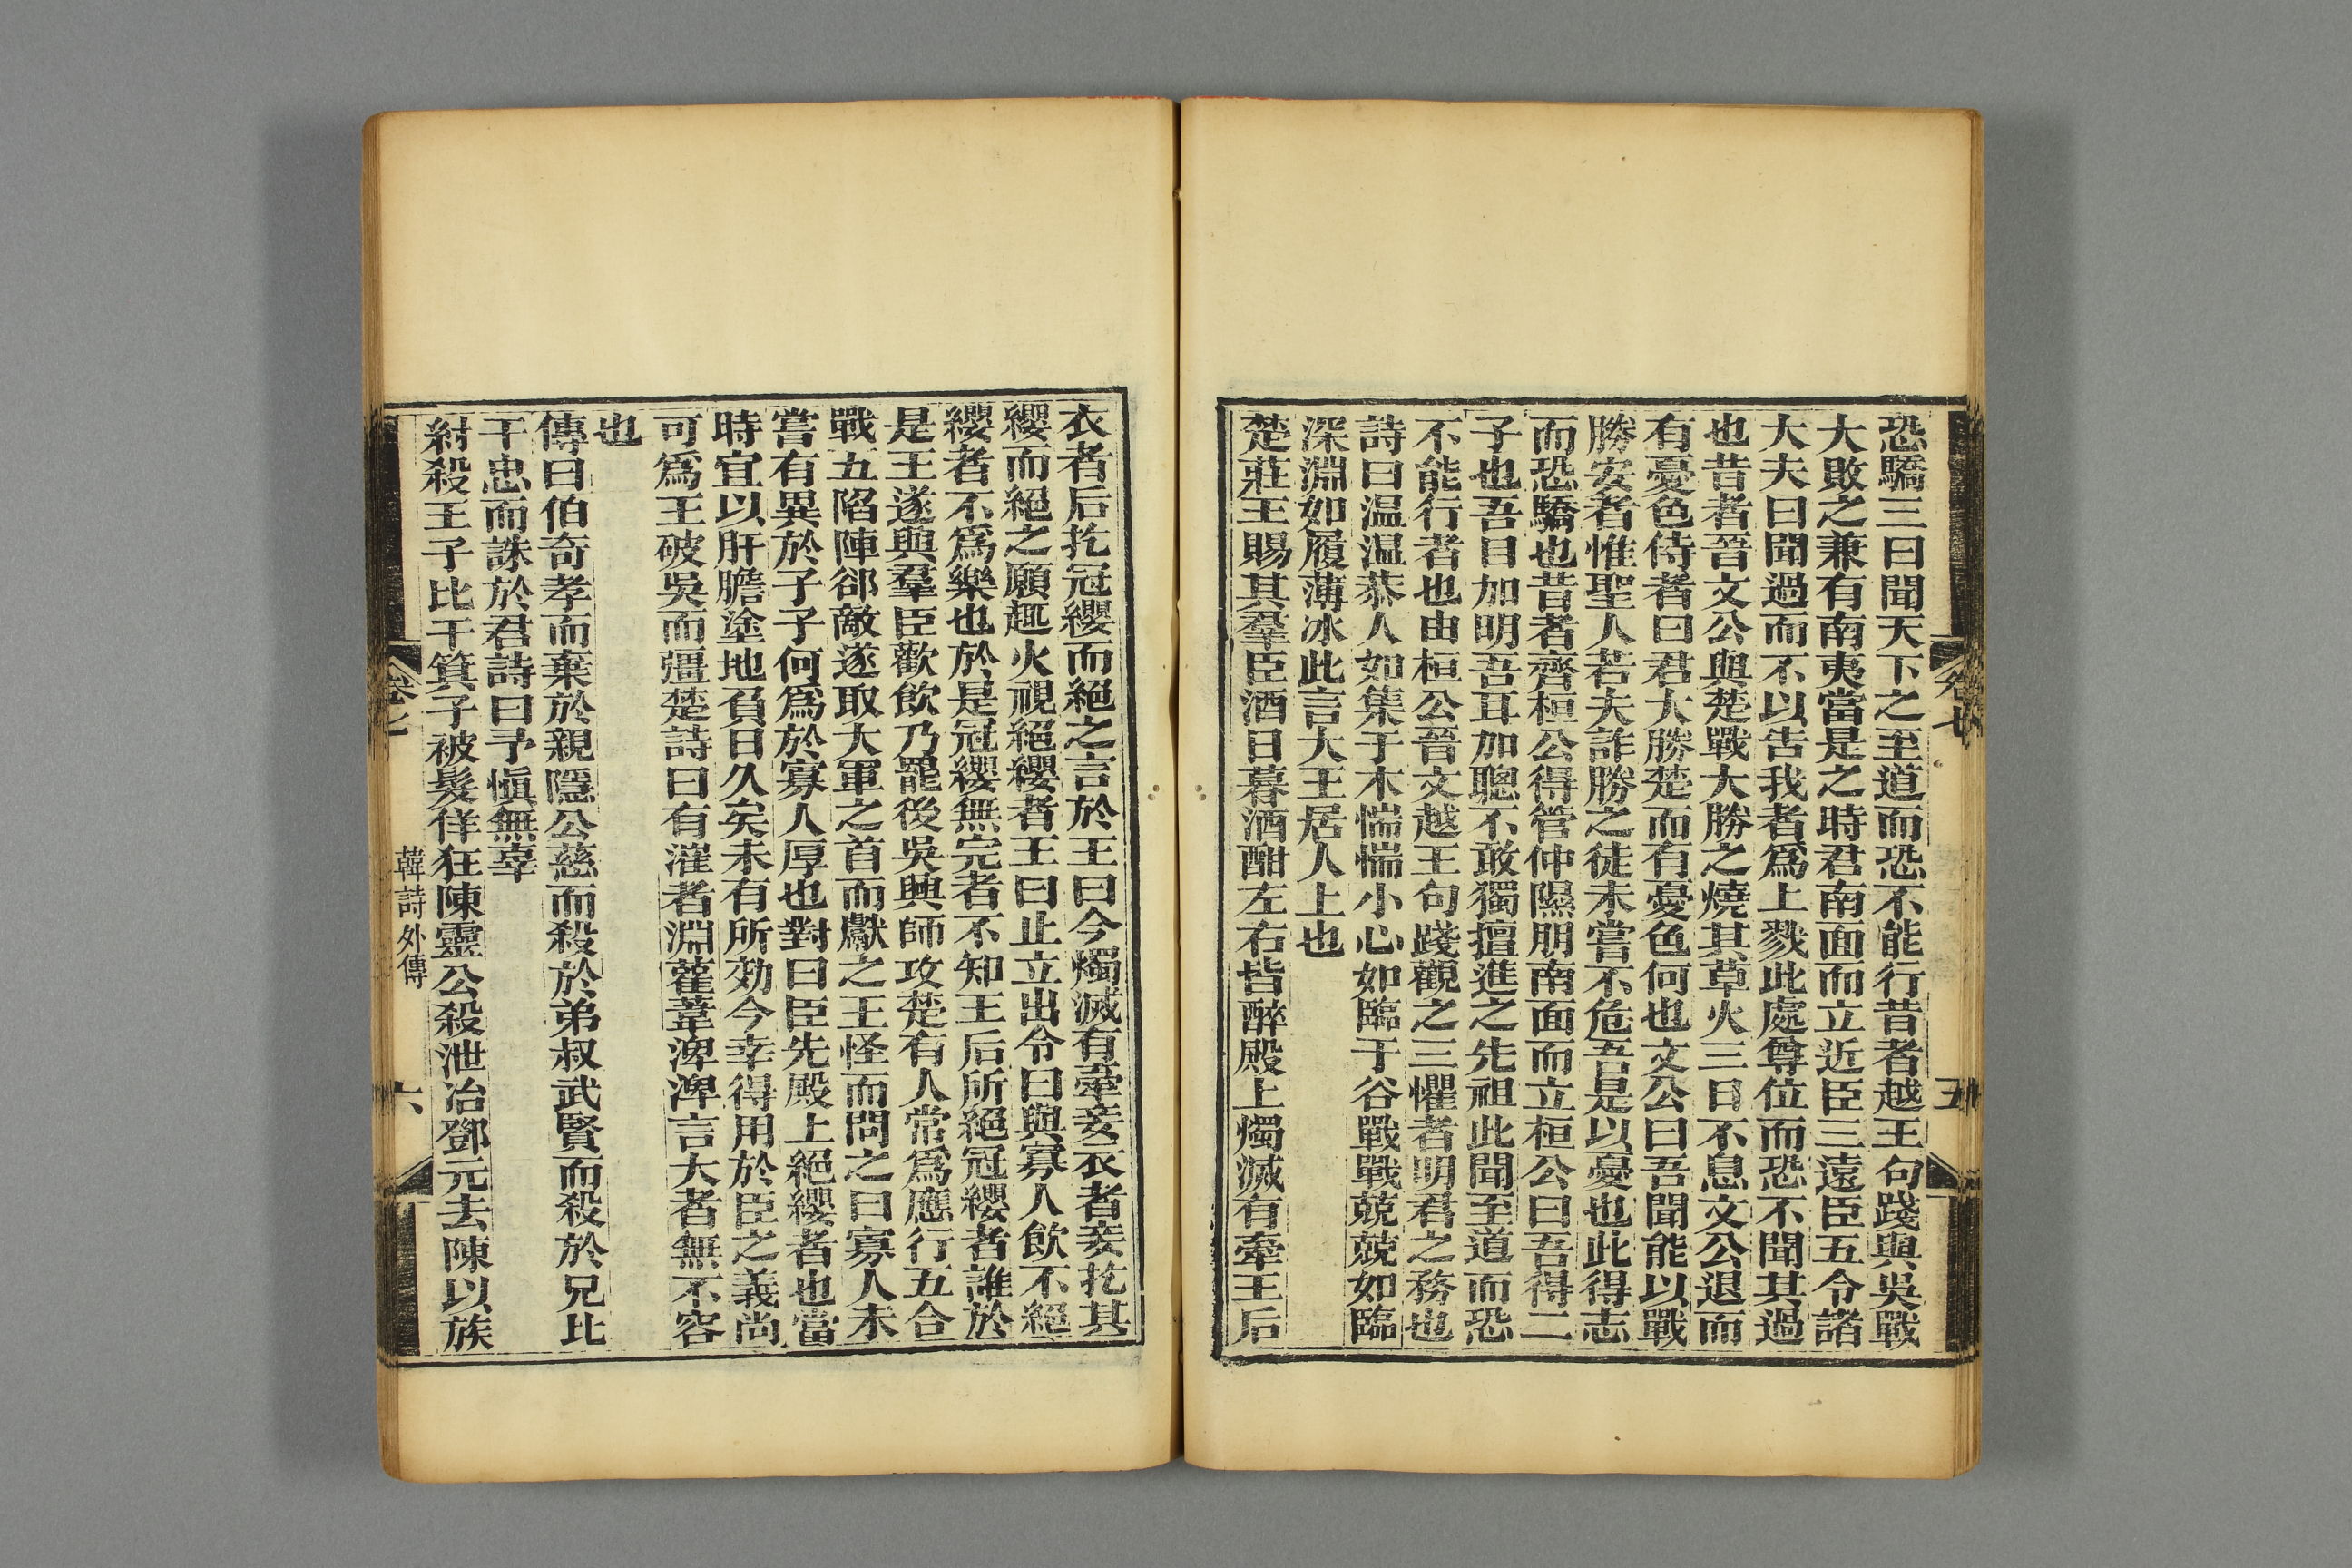 恐驕三曰聞天下之至道而恐不能行昔者越王句踐與吳戰
大敗之兼有南夷當是之時君南面而立近臣三遠臣五令諸
大夫曰聞過而不以告我者爲上戮此處尊位而恐不聞其過
也昔者晉文公與楚戰大勝之燒其草火三日不息文公退而
有憂色侍者曰君大勝楚而有憂色何也文公曰吾聞能以戰
勝安者惟聖人若夫詐勝之徒未嘗不危吾是以憂也此得志
而恐驕也昔者齊桓公得管仲隰朋南面而立桓公曰吾得二
子也吾目加明吾耳加聰不敢獨擅進之先祖此聞至道而恐
不能行者也由桓公晉文越王句踐觀之三懼者明君之務也
詩曰温温恭人如集于木惴惴小心如臨于谷戰戰兢兢如臨
深淵如履薄冰此言大王居人上也
楚莊王賜其羣臣酒日暮酒酣左右皆醉殿上燭滅有牽王后
卷七
五
衣者后扢冠纓而絕之言於王曰今燭滅有牽妾衣者妾扢其
纓而絕之願趣火視絕纓者王曰止立出令曰與寡人飲不絕
纓者不爲樂也於是冠纓無完者不知王后所絕冠纓者誰於
是王遂與羣臣歡飲乃罷後吳興師攻楚有人常爲應行五合
戰五陷陣郤敵遂取大軍之首而獻之王怪而問之曰寡人未
嘗有異於子子何爲於寡人厚也對曰臣先殿上絕纓者也當
時宜以肝膽塗地負日久矣未有所効今幸得用於臣之義尚
可爲王破吳而彊楚詩曰有漼者淵雚葦淠淠言大者無不容
也
傳曰伯奇孝而棄於親隱公慈而殺於弟叔武賢而殺於兄比
干忠而誅於君詩曰予愼無辜
紂殺王子比干箕子被髮佯狂陳靈公殺泄冶鄧元去陳以族
卷七
韓詩外傳
六